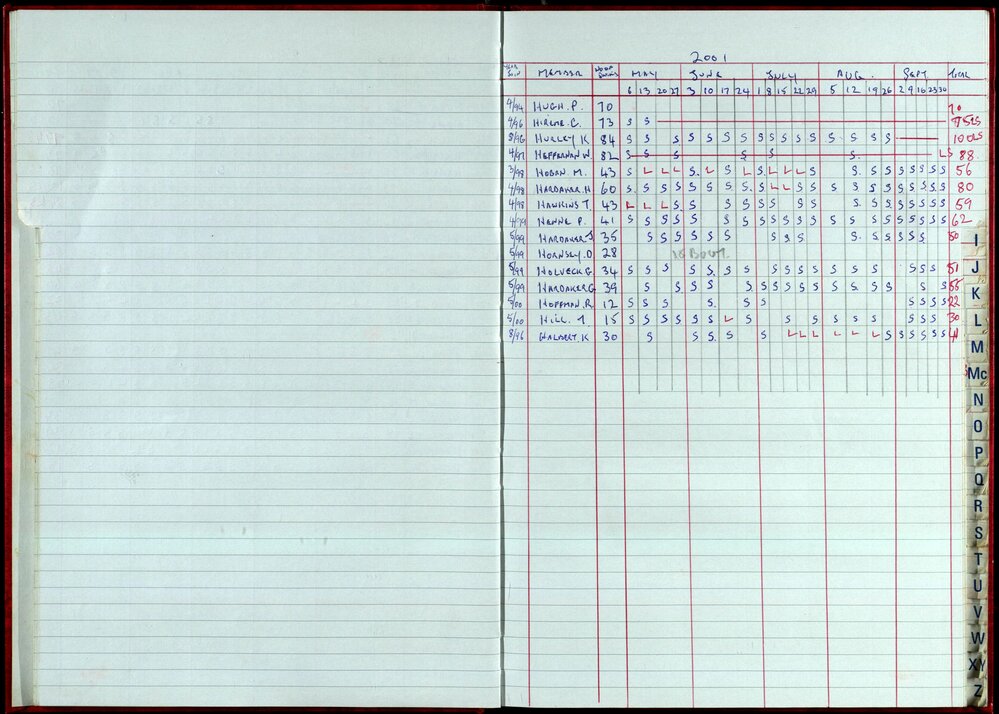 2001
MEMBER MAY JUNE JULY AUG. SEPT TOTAL
6 13 20 27 3 10 17 24 1 8 15 22 29 5 12 19 26 2 9 16 23 30
4/94 HUGH. P. 70 70
4/96 C. 73 S S
8/96 HURLEY K 84 S S S S S S S S S S S S S S S S 100
4/97 HEFFERNAN W. 82 S S S S S S. LS 88
3/98 HOBAN M. 43 S L L L S. L S L S L L L S S. S S S S S S S 56
4/98 HARDAKER. H 60 S S S S S S S S S L L S S S S S S S S S S S 80
4/98 HAWKINS T. 43 L L L S S S S S S S S S S S S S S S S 59
4/99 HANNE P. 41 S S S S S S S S S S S S S S S S S S S S S 62
5/99 HARDAKER. J 35 S S S S S S S S S S. S S S S S 50
5/99 HORNSEY. D 28
5/99 HOLVECK G 34 S S S S S. S S S S S S S S S S S S 51
5/99 HARDAKER G 39 S S S S S S S S S S S S S S S S 55
5/00 HOFFMAN. R 12 S S S S. S S S S S S 22
5/00 HILL. T. 15 S S S S S S L S S S S S S S S 30
8/96 K 30 S S S. S S L L L L L L S S S S S S 41
I
J
K
L
M
Mc
N
O
P
Q
R
S
T
U
V
W
XY
Z